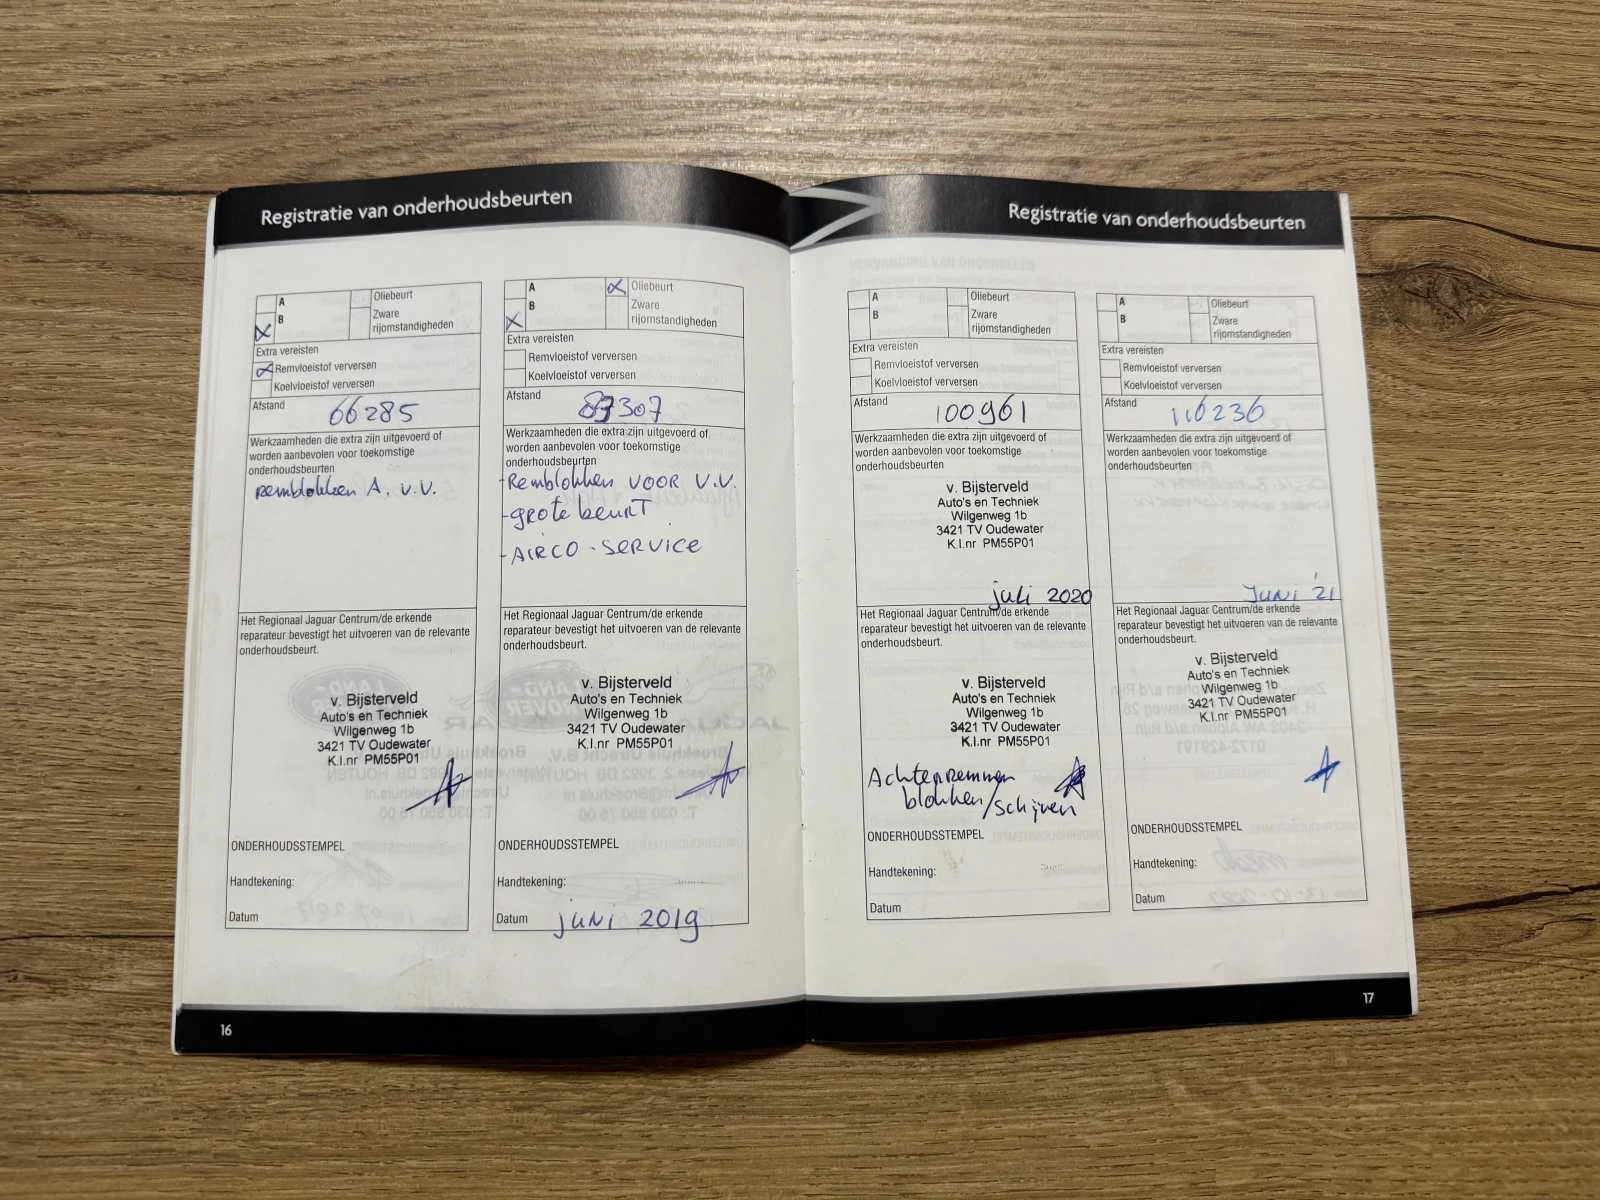 Registratie van onderhoudsbeurten
A
B
Oliebeurt
Zware
rijomstandigheden
Extra vereisten
Remvloeistof verversen
Koelvloeistof verversen
Afstand
66285
Werkzaamheden die extra zijn uitgevoerd of
worden aanbevolen voor toekomstige
onderhoudsbeurten
remblokken A. V.V.
Het Regionaal Jaguar Centrum/de erkende
reparateur bevestigt het uitvoeren van de relevante
onderhoudsbeurt.
v. Bijsterveld
Auto's en Techniek
Wilgenweg 1b
3421 TV Oudewater
K.I.nr PM55P01
ONDERHOUDSSTEMPEL
Handtekening:
Datum
A
B
Oliebeurt
Zware
rijomstandigheden
Extra vereisten
Remvloeistof verversen
Koelvloeistof verversen
Afstand
83307
Werkzaamheden die extra zijn uitgevoerd of
worden aanbevolen voor toekomstige
onderhoudsbeurten
-Remblokken VOOR V.V.
-grote beurt
-AIRCO-SERVICE
Het Regionaal Jaguar Centrum/de erkende
reparateur bevestigt het uitvoeren van de relevante
onderhoudsbeurt.
v. Bijsterveld
Auto's en Techniek
Wilgenweg 1b
3421 TV Oudewater
K.I.nr PM55P01
ONDERHOUDSSTEMPEL
Handtekening:
Datum juni 2019
16
Registratie van onderhoudsbeurten
A
B
Oliebeurt
Zware
rijomstandigheden
Extra vereisten
Remvloeistof verversen
Koelvloeistof verversen
Afstand
100961
Werkzaamheden die extra zijn uitgevoerd of
worden aanbevolen voor toekomstige
onderhoudsbeurten
v. Bijsterveld
Auto's en Techniek
Wilgenweg 1b
3421 TV Oudewater
K.I.nr PM55P01
juli 2020
Het Regionaal Jaguar Centrum/de erkende
reparateur bevestigt het uitvoeren van de relevante
onderhoudsbeurt.
v. Bijsterveld
Auto's en Techniek
Wilgenweg 1b
3421 TV Oudewater
K.I.nr PM55P01
Achterremmen
blokken/schijven
ONDERHOUDSSTEMPEL
Handtekening:
Datum
A
B
Oliebeurt
Zware
rijomstandigheden
Extra vereisten
Remvloeistof verversen
Koelvloeistof verversen
Afstand
116236
Werkzaamheden die extra zijn uitgevoerd of
worden aanbevolen voor toekomstige
onderhoudsbeurten
Juni '21
Het Regionaal Jaguar Centrum/de erkende
reparateur bevestigt het uitvoeren van de relevante
onderhoudsbeurt.
v. Bijsterveld
Auto's en Techniek
Wilgenweg 1b
3421 TV Oudewater
K.I.nr PM55P01
ONDERHOUDSSTEMPEL
Handtekening:
Datum
17